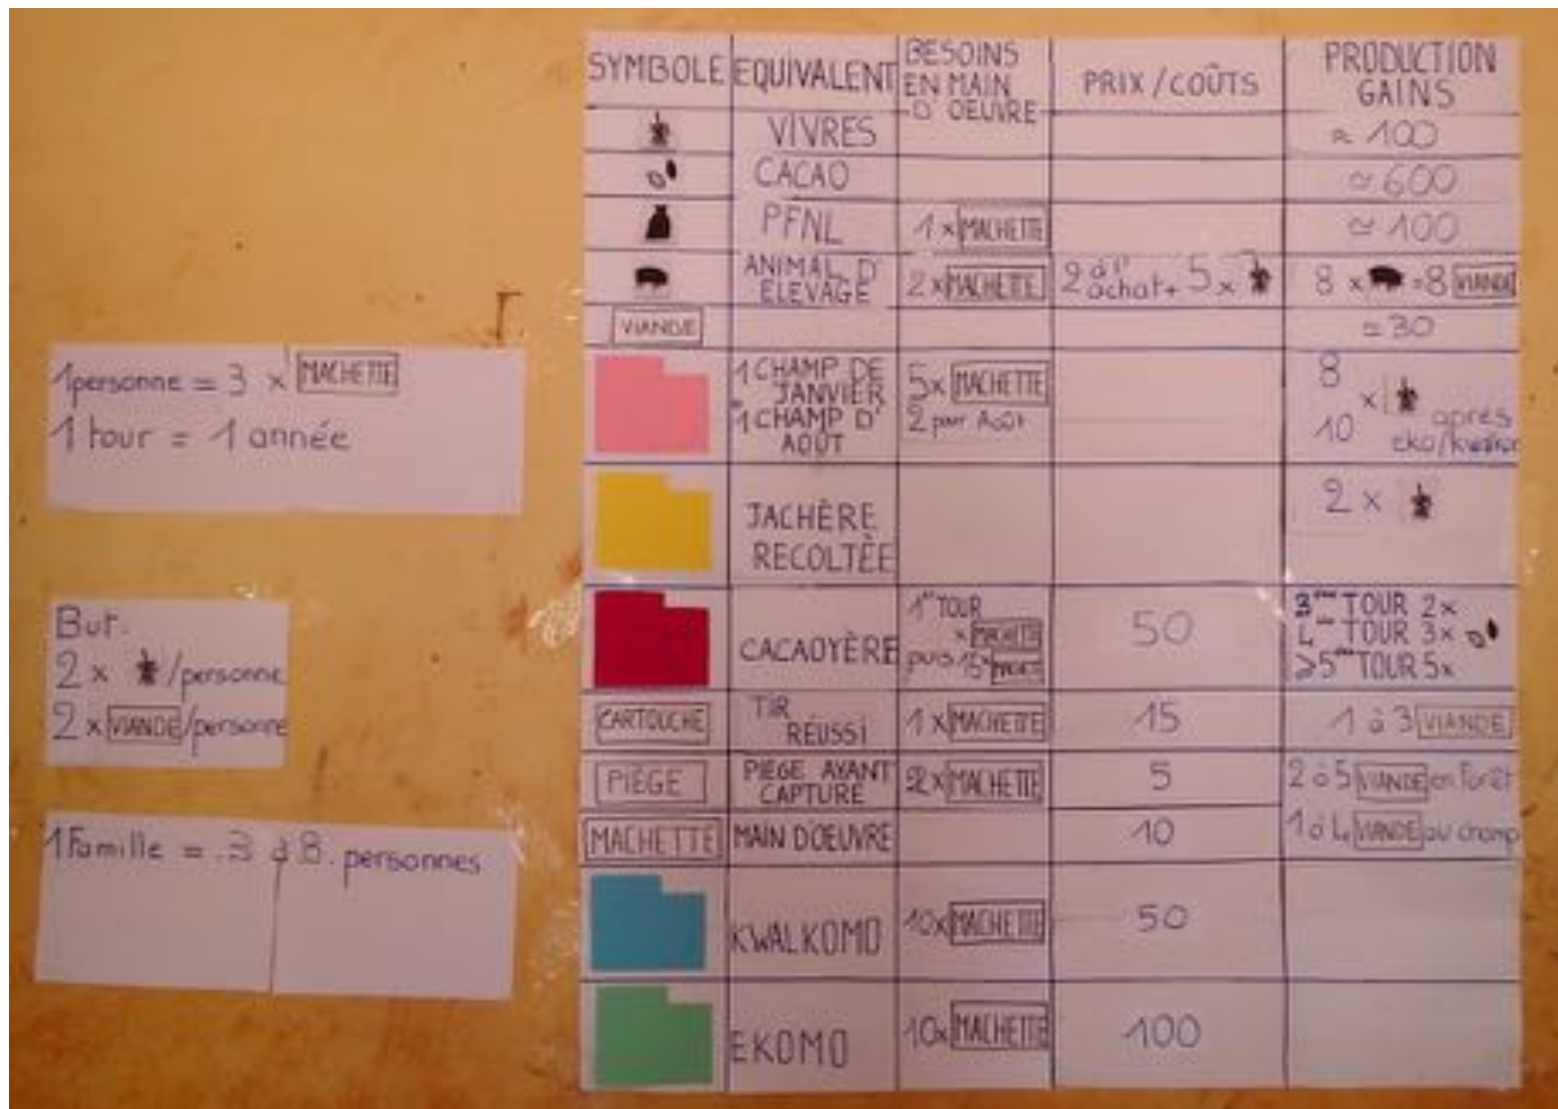 1 personne = 3 x MACHETTE
1 tour = 1 année
But.
2 x /personne
2 x VIANDE/personne
1 Famille = 3 à 8 personnes
SYMBOLE EQUIVALENT BESOINS EN MAIN D'OEUVRE PRIX/COÛTS PRODUCTION GAINS
VIVRES ≃ 100
CACAO ≃ 600
PFNL 1x MACHETTE ≃ 100
ANIMAL D'ELEVAGE 2x MACHETTE 2 à l'achat + 5 x 8 x = 8 VIANDE
VIANDE = 30
1 CHAMP DE JANVIER 5x MACHETTE 8
1 CHAMP D'AOÛT 2 pour Août 10 x après
JACHÈRE RECOLTÈE 2 x
CACAOYÈRE 1er TOUR x MACHETTE puis 15x 50 3ème TOUR 2x
TOUR 3x
≥5ème TOUR 5x
CARTOUCHE TIR RÉUSSI 1x MACHETTE 15 1 à 3 VIANDE
PIÈGE PIÈGE AYANT CAPTURÉ 2x MACHETTE 5 2 à 5 VIANDE en Forêt
MACHETTE MAIN D'OEUVRE 10 1 à 4 VIANDE au champ
KWALKOMO 10x MACHETTE 50
EKOMO 10x MACHETTE 100